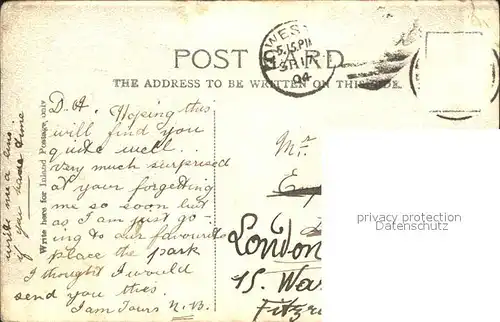 POST CARD
THE ADDRESS TO BE WRITTEN ON THIS SIDE.
5.15 PM
SP 17
04
Write here for Inland Postage, only
write me a line
if you have time
D. A. Hoping this
will find you
quite well..
very much surprised
at your forgetting
me so soon but
as I am just go-
ing to our favourite
place the park
I thought I would
send you this.
I am Yours N.B.
Mr
London
15. 
privacy protection
Datenschutz